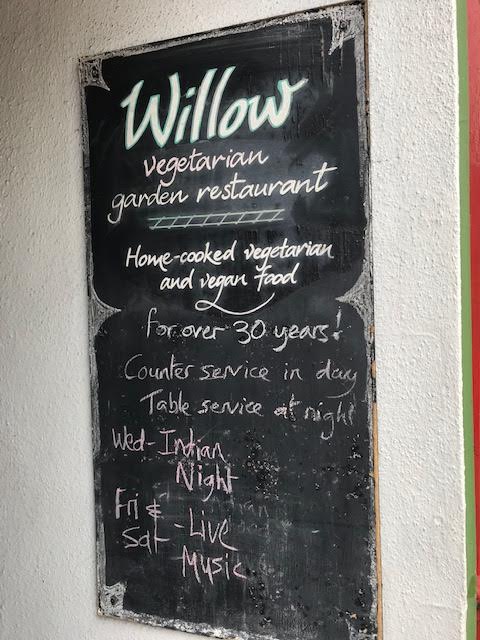 Willow
vegetarian
garden restaurant
Home-cooked vegetarian
and vegan food
for over 30 years!
Counter service in day
Table service at night
Wed - Indian
Night
Fri &
Sat - Live
Music